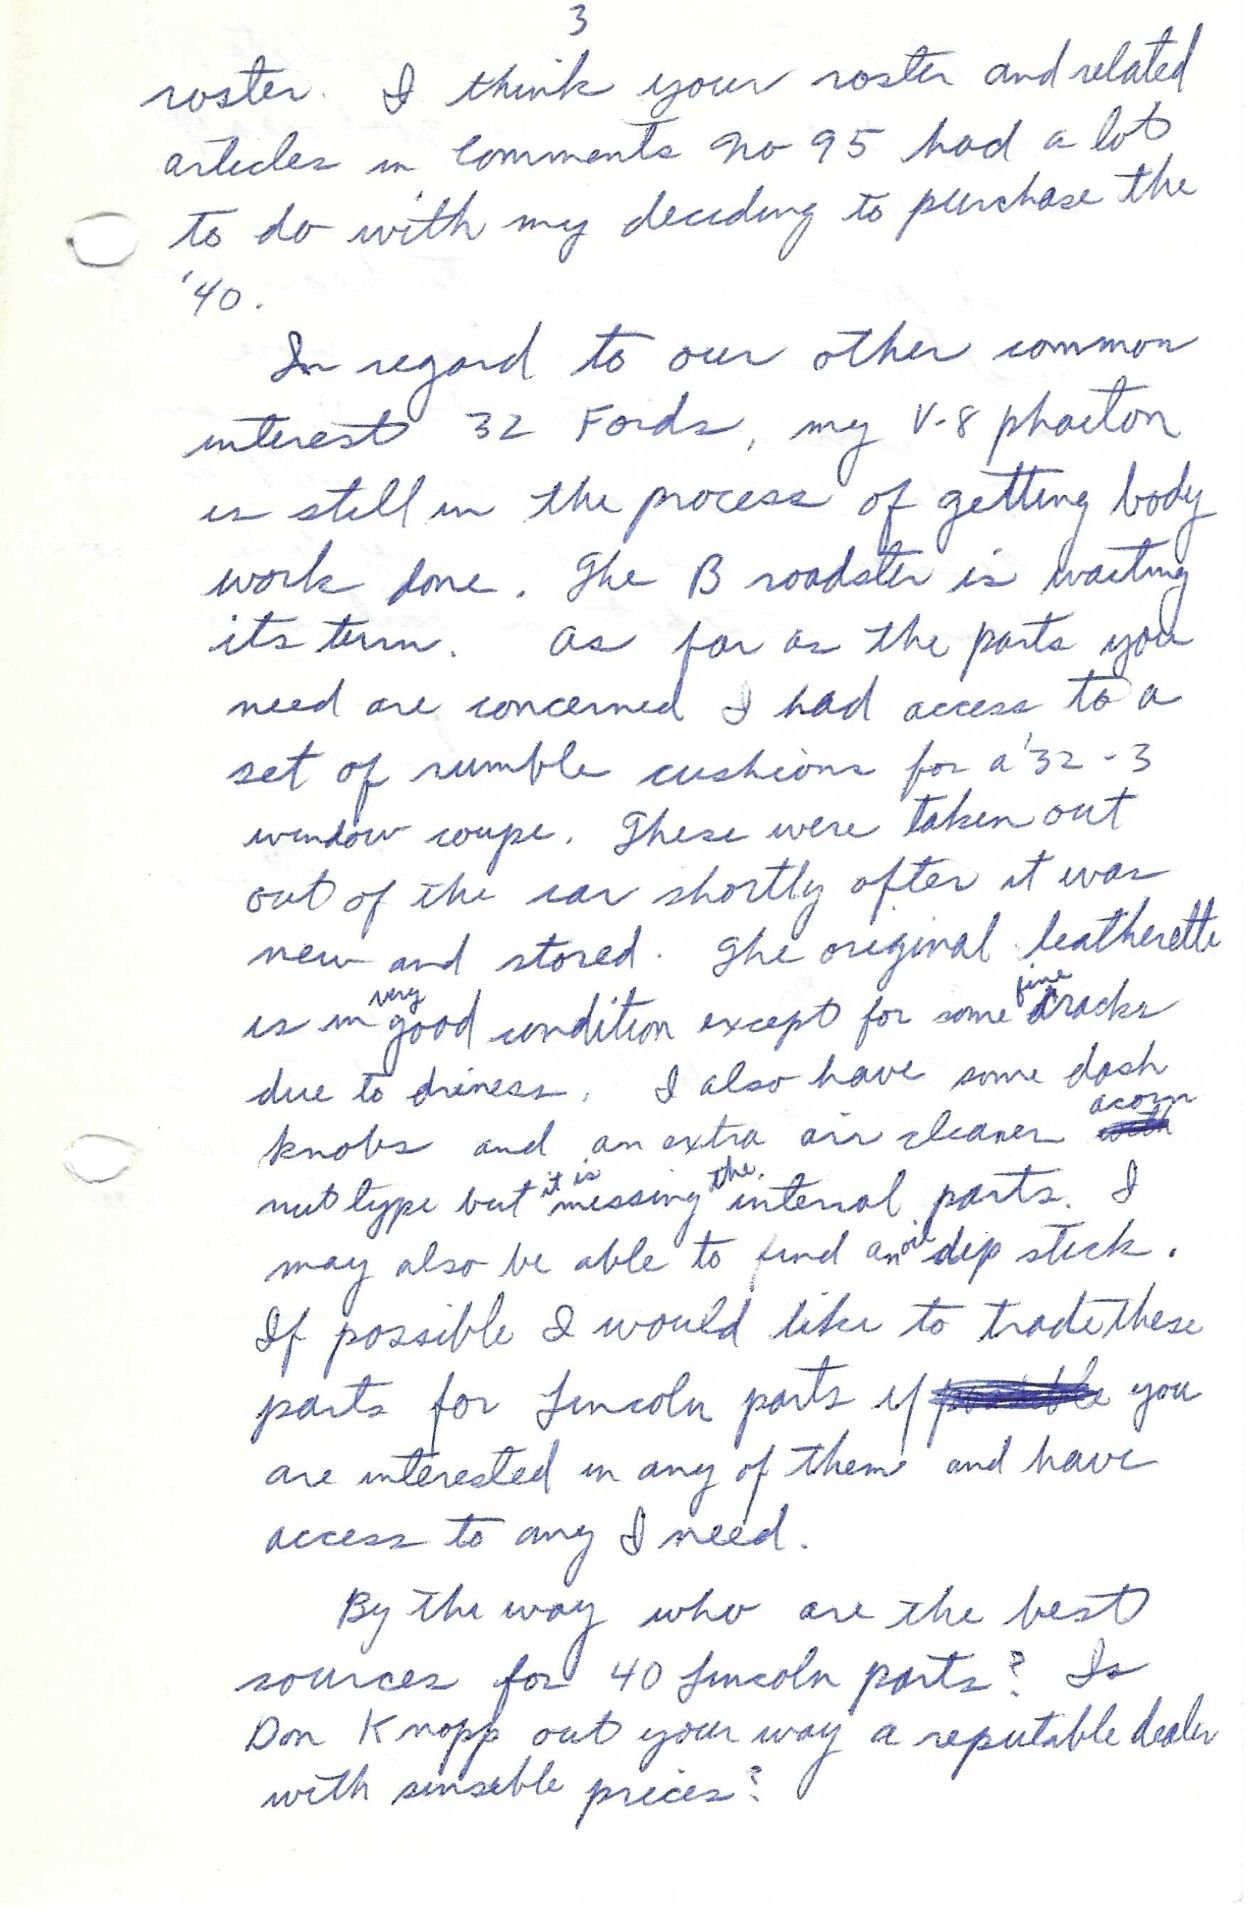 3
roster. I think your roster and related
articles in Comments No 95 had a lot
to do with my deciding to purchase the
'40.
In regard to our other common
interest 32 Fords, my V-8 phaeton
is still in the process of getting body
work done. The B roadster is waiting
its turn. As far as the parts you
need are concerned I had access to a
set of rumble cushions for a '32-3
window coupe. These were taken out
out of the car shortly after it was
new and stored. The original leatherette
is in very good condition except for some fine cracks
due to driness. I also have some dash
knobs and an extra air cleaner acorn
nut type but it is missing the internal parts. I
may also be able to find an oil dip stick.
If possible I would like to trade these
parts for Lincoln parts if you
are interested in any of them and have
access to any I need.
By the way who are the best
sources for 40 Lincoln parts? Is
Don Knopp out your way a reputable dealer
with sinsible prices?